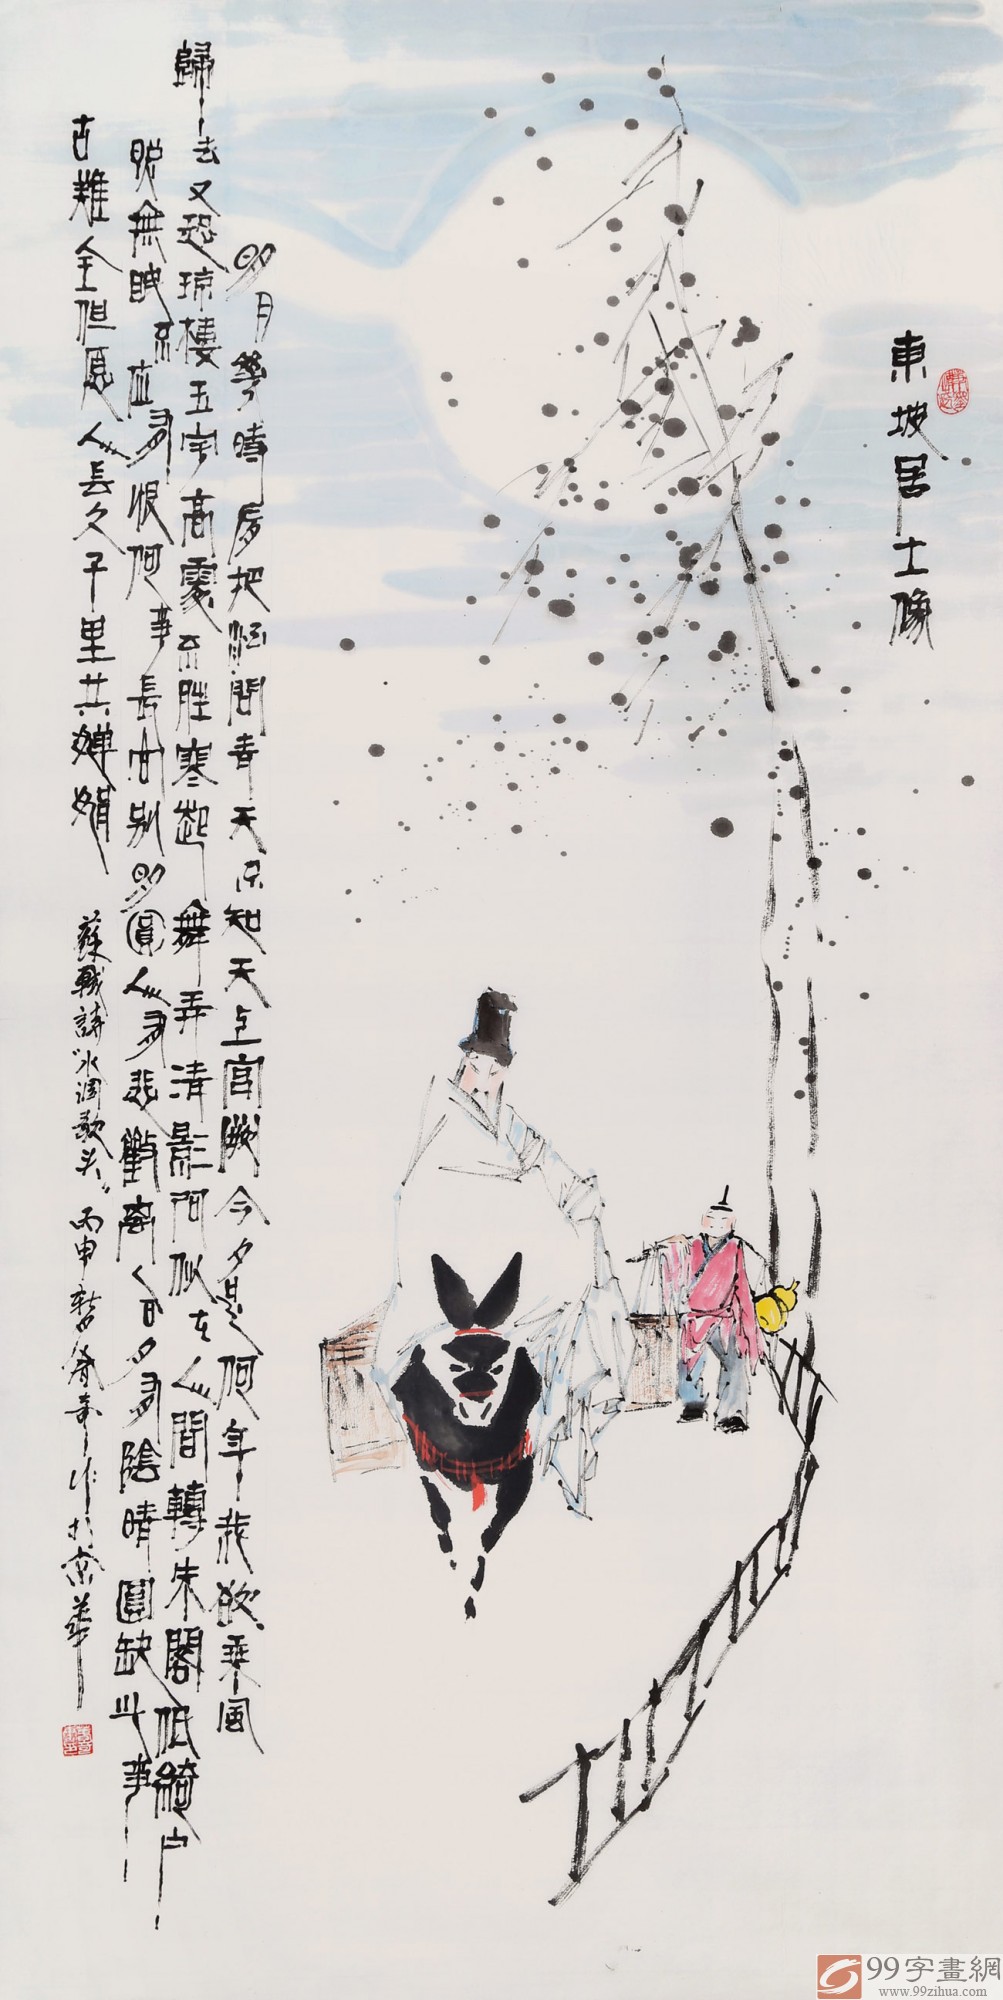 東坡居士像
明月幾時有把酒問青天不知天上宮闕今夕是何年我欲乘風
歸去又恐琼樓玉宇高處不胜寒起舞弄清影何似在人間轉朱閣低綺户
照無眠不应有恨何事長向别明圓人有悲歡离合月有陰晴圓缺此事
古難全但愿人長久千里共嬋娟
蘇軾詩"水調歌头"丙申 作於京華
99字畫網
www.99zihua.com